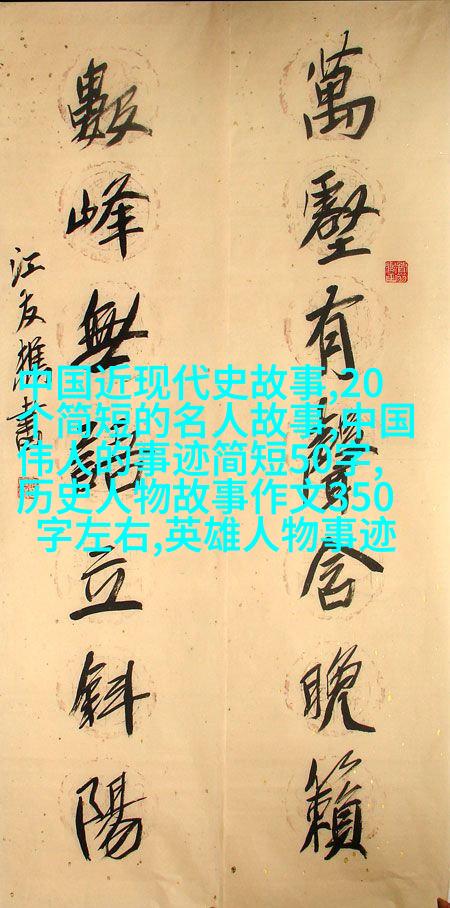 萬壑有聲含晚籟
數峰無語立斜陽
江友樵書
中国近现代史故事,20
个简短的名人故事,中国
伟人的事迹简短50字,
历史人物故事作文350
字左右,英雄人物事迹